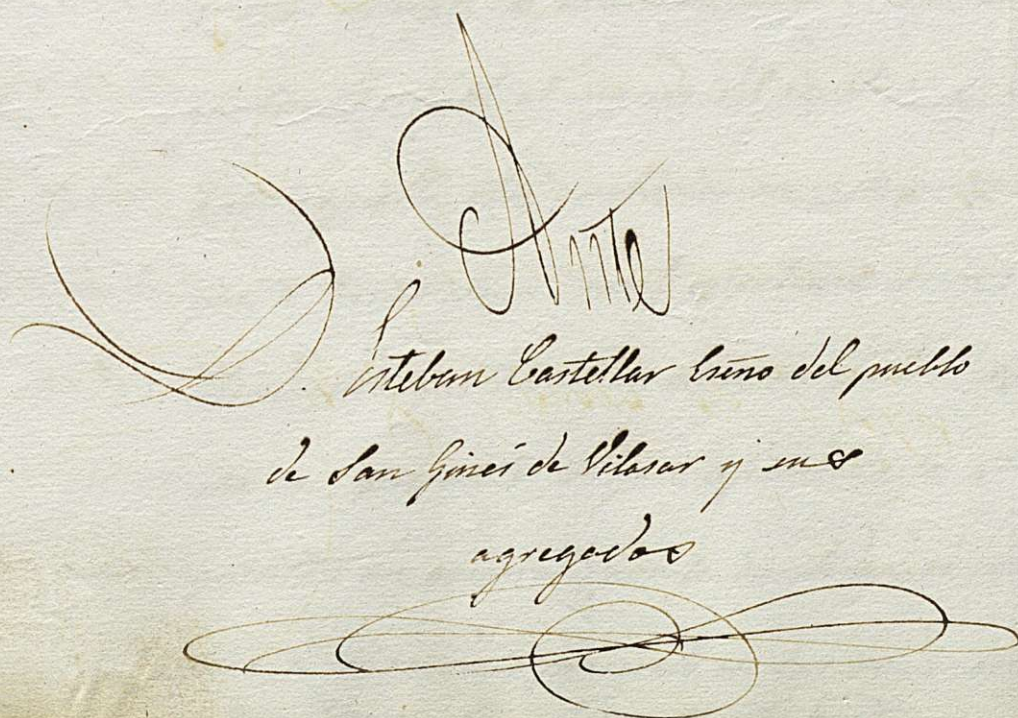 Ante
D. Esteban Castellar Esno̅ del pueblo
de San Ginés de Vilasar y sus
agregados